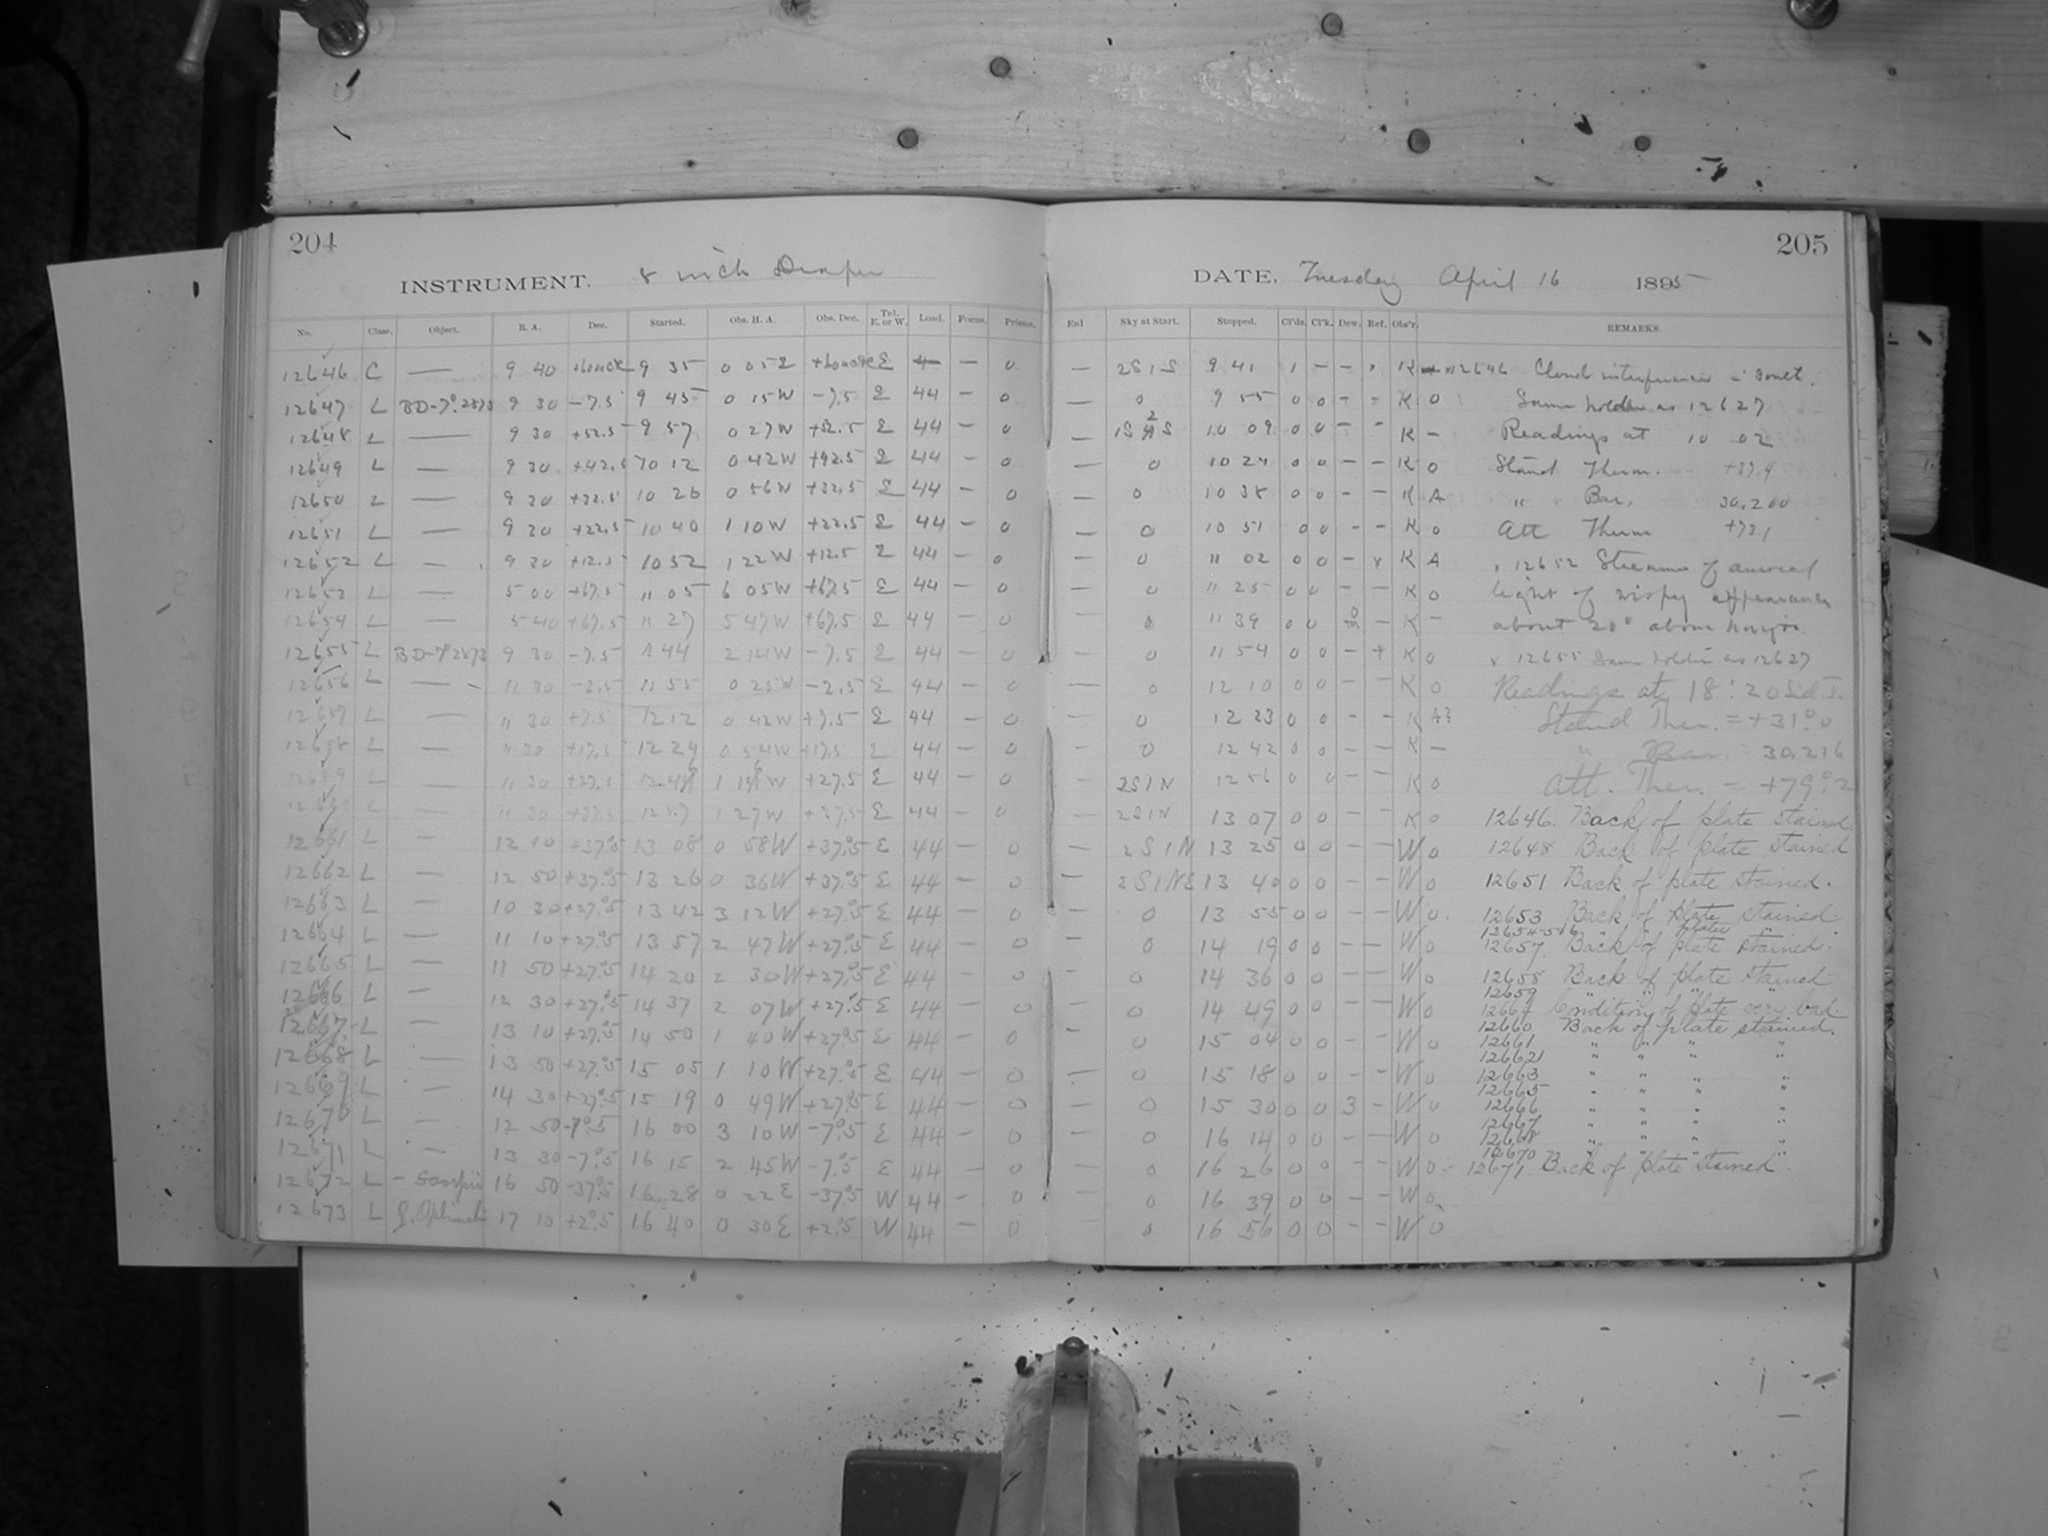 204
205
INSTRUMENT. 8 inch Draper
DATE, Tuesday April 16 1895
No. Class. Object. R. A. Dec. Started. Obs. H. A. Obs. Dec. Tel. E. or W. Load. Focus. Prisms. Enl Sky at Start. Stopped. Cl'ds. Cl'k. Dew. Ref. Obs'r. REMARKS.
12646 C — 9 40 9 35 0 05 E E — 0 — 2S1S 9 41 1 — — x K x 12646 Cloud interference in South.
12647 L BD-7°.2873 9 30 -7.5 9 45 0 15W -7.5 E 44 — 0 — 0 9 55 0 0 - - K 0 Same holder as 12627
12648 L — 9 30 +52.5 9 57 0 27W +52.5 E 44 — 0 — 10 09 0 0 - - K - Readings at 10 02
12649 L — 9 30 +42.5 10 12 0 42W +42.5 E 44 — 0 — 0 10 24 0 0 - - K 0 Stand Therm.
12650 L — 9 30 +32.5 10 26 0 56W +32.5 E 44 — 0 — 0 10 38 0 0 - - K A " Bar. 30.200
12651 L — 9 30 +22.5 10 40 1 10W +22.5 E 44 — 0 — 0 10 51 0 0 - - K 0 Att Therm
12652 L — 9 30 +12.5 10 52 1 22W +12.5 E 44 — 0 0 11 02 0 0 - x K A x 12652 Streams of auroral
12653 L — 5 00 +67.5 11 05 6 05W +67.5 E 44 — 0 — 0 11 25 0 0 - - K 0 light of wispy appearance
12654 L — 5 40 +67.5 11 27 5 47W +67.5 E 44 — 0 0 11 39 0 0 - K - about 20° above horizon.
12655 L BD-7°2873 9 30 -7.5 11 44 2 14W -7.5 E 44 — 0 0 11 54 0 0 - x K 0 x 12655 Same holder as 12627
12656 L — 11 30 -2.5 11 55 0 25W -2.5 E 44 — 0 — 0 12 10 0 0 - - K 0 Readings at 18:20 Sid.T.
12657 L — 11 30 +7.5 12 12 0 42W +7.5 E 44 — 0 — 0 12 23 0 0 - - K Stand Ther. = +31°.0
12658 L — 11 30 +17.5 12 24 0 54W +17.5 E 44 — 0 0 12 42 0 0 - - K — " Bar. = 30.216
12659 L — 11 30 +27.5 +27.5 E 44 — 0 2S1N 12 56 0 0 - - K 0 Att. Ther. = +79°.2
12660 L — 11 30 +37.5 12 57 1 27W +37.5 E 44 — 0 2S1N 13 07 0 0 - - K 0 12646. Back of plate stained
12661 L — 12 10 +37°.5 13 08 0 58W +37°.5 E 44 — 0 — 2S1N 13 25 0 0 - - W 0 12648 Back of plate stained
12662 L — 12 50 +37°.5 13 26 0 36W +37°.5 E 44 — 0 — 2S1NE 13 40 0 0 - - W 0 12651 Back of plate stained.
12663 L — 10 30 +27°.5 13 42 3 12W +27°.5 E 44 — 0 — 0 13 55 0 0 - - W 0 12653 Back of plate stained.
12664 L — 11 10 +27°.5 13 57 2 47W +27°.5 E 44 — 0 — 0 14 19 0 0 - - W 0 12657. Back of plate stained.
12665 L — 11 50 +27°.5 14 20 2 30W +27°.5 E 44 — 0 — 0 14 36 0 0 - - W 0 12658 Back of plate stained
12659 " " " "
12666 L — 12 30 +27°.5 14 37 2 07W +27°.5 E 44 — 0 — 0 14 49 0 0 - - W 0 12664 Condition of plate very bad
12660 Back of plate stained.
12667 L — 13 10 +27°.5 14 50 1 40W +27°.5 E 44 — 0 — 0 15 04 0 0 - - W 0 12661 " " " "
12662 " " " "
12668 L — 13 50 +27°.5 15 05 1 10W +27°.5 E 44 — 0 — 0 15 18 0 0 - - W 0 12663 " " " "
12665 " " " "
12669 L — 14 30 +27°.5 15 19 0 49W +27°.5 E 44 — 0 — 0 15 30 0 0 3 - W 0 12666 " " " "
12667 " " " "
12670 L — 12 50 -7°.5 16 00 3 10W -7°.5 E 44 — 0 — 0 16 14 0 0 - - W 0 12668 " " " "
12670 " " " "
12671 L — 13 30 -7°.5 16 15 2 45W -7°.5 E 44 — 0 — 0 16 26 0 0 - - W 0 12671. Back of plate stained.
12672 L - Scorpii 16 50 -37°.5 16 28 0 22 E -37°.5 W 44 — 0 — 0 16 39 0 0 - - W 0
12673 L 17 10 +2°.5 16 40 0 30 E +2°.5 W 44 — 0 — 0 16 56 0 0 - - W 0